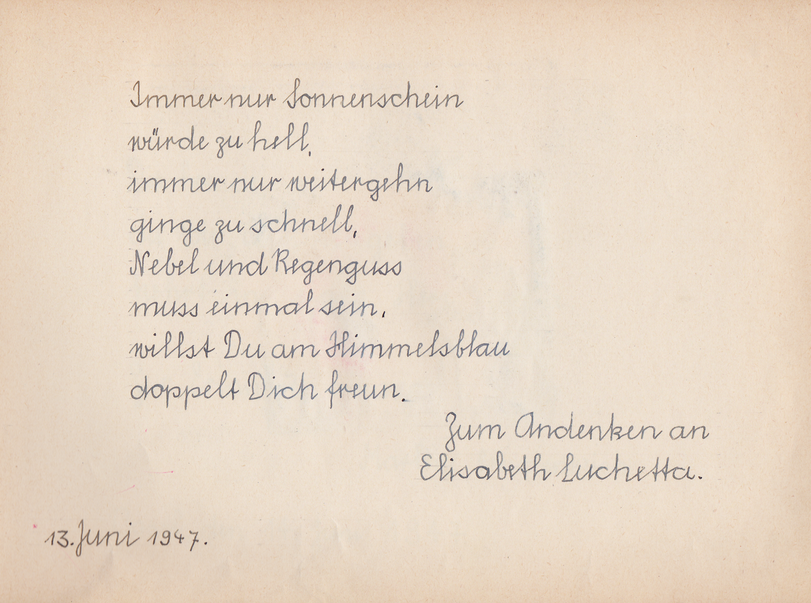 Immer nur Sonnenschein
würde zu hell,
immer nur weitergehn
ginge zu schnell,
Nebel und Regenguss
muss einmal sein,
willst Du am Himmelsblau
doppelt Dich freun.
Zum Andenken an
Elisabeth Luchetta.
13. Juni 1947.